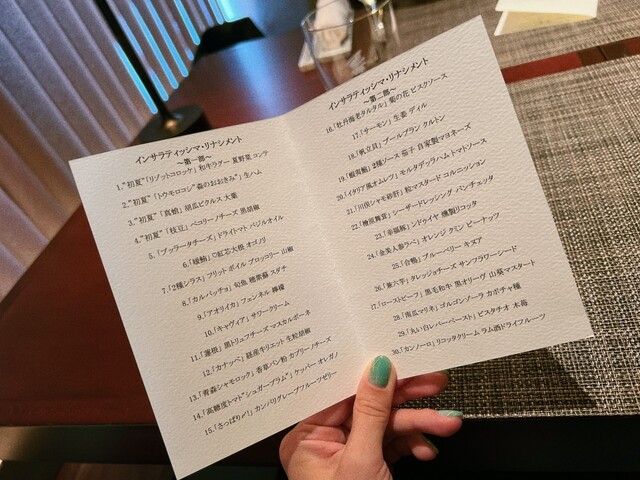 インサラティッシマ・リナシメント
～第一部～
1."初夏"「リゾットコロッケ」和牛ラグー 夏野菜 コンテ
2."初夏"「トウモロコシ"森のおおさみ"」生ハム
3."初夏"「真蛸」胡瓜ピクルス 大葉
4."初夏"「枝豆」ペコリーノチーズ 黒胡椒
5.「ブッラータチーズ」ドライトマト バジルオイル
紅芯大根 オゴノリ
7.「2種シラス」フリット ボイル ブロッコリー 山椒
8.「カルパッチョ」旬魚 穂紫蘇 スダチ
9.「アオリイカ」フェンネル 檸檬
10.「キャヴィア」サワークリーム
11.「蓮根」黒トリュフチーズ マスカルポーネ
12.「カナッペ」経産牛リエット 生胡椒
13.「青森シャモロック」香草パン粉 カプリーノチーズ
14.「高糖度トマト"シュガープラム"」ケッパー オレガノ
15.「さっぱり〆!」カンパリグレープフルーツゼリー
インサラティッシマ・リナシメント
～第二部～
16.「牡丹海老タルタル」菊の花 ビスクソース
17.「サーモン」生姜 ディル
18.「帆立貝」ブールブラン クルトン
19.「蝦夷鮑」2種ソース 茄子 自家製マヨネーズ
20.「イタリア風オムレツ」モルタデッラハム トマトソース
21.「川俣シャモ砂肝」粒マスタード コルニッション
22.「檜原舞茸」シーザードレッシング パンチェッタ
23.「幸福豚」ンドゥイヤ 燻製リコッタ
24.「金美人参ラペ」オレンジ クミン ピーナッツ
25.「合鴨」ブルーベリー キヌア
26.「兼六芋」タレッジョチーズ サンフラワーシード
17.「ローストビーフ」黒毛和牛 黒オリーヴ 山葵マスタート
28.「南瓜マリネ」ゴルゴンゾーラ カボチャ種
29.「丸い白レバーペースト」ピスタチオ 木苺
30.「カンノーロ」リコッタクリーム ラム酒ドライフルーツ